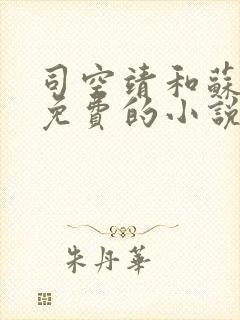 司空靖和蘇
免費的小說
朱丹華